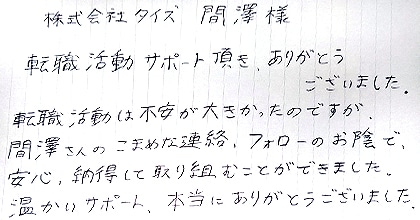 株式会社タイズ 間澤様
転職活動サポート頂き、ありがとう
ございました。
転職活動は不安が大きかったのですが、
間澤さんのこまめな連絡、フォローのお陰で、
安心、納得して取り組むことができました。
温かいサポート、本当にありがとうございました。